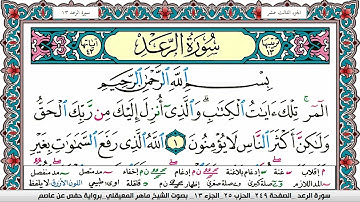 الجزء الثالث عشر
سورة الرعد ١٣
ترتيبها ١٣
سُورَةُ الرَّعْدِ
آياتها ٤٣
بِسْمِ اللَّهِ الرَّحْمَٰنِ الرَّحِيمِ
الٓمٓرۚ تِلْكَ ءَايَٰتُ الْكِتَٰبِۗ وَالَّذِىٓ أُنزِلَ إِلَيْكَ مِن رَّبِّكَ الْحَقُّ
وَلَٰكِنَّ أَكْثَرَ النَّاسِ لَا يُؤْمِنُونَ ١ اللَّهُ الَّذِى رَفَعَ السَّمَٰوَٰتِ بِغَيْرِ
سورة الرعد الصفحة ٢٤٩ الحزب ٢٥ الجزء ١٣ بصوت الشيخ ماهر المعيقلي برواية حفص عن عاصم